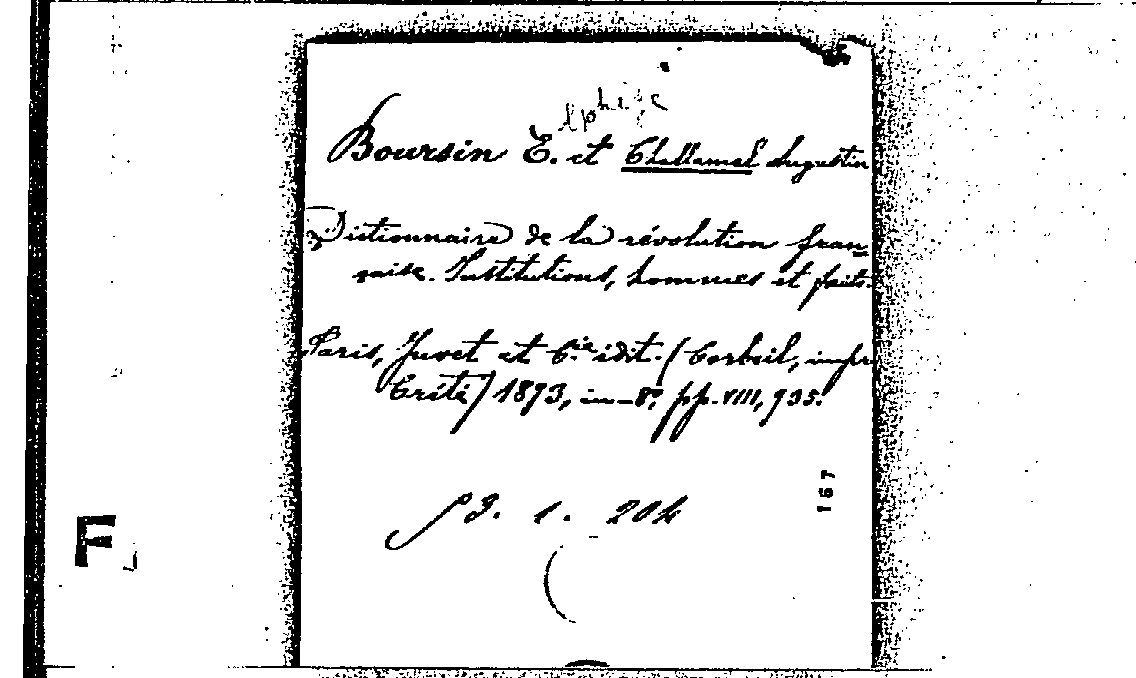 Elphège
Boursin E. et Challamel Augustin
Dictionnaire de la révolution fran-
çaise. Institutions, hommes et faits.
Paris, Juvet et Cie édit. (Corbeil, impr
Crété) 1893, in-8°, pp. VIII, 935.
167
13. 1. 204
F